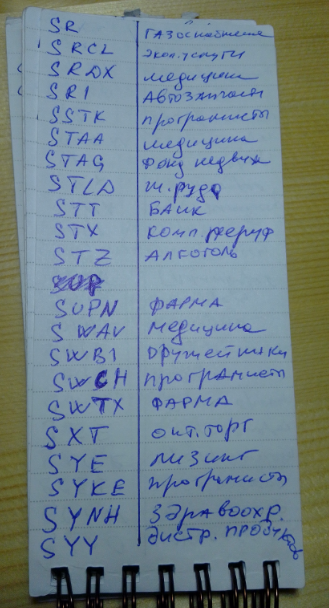 SR газоснабжение
SRCL экол. услуги
SRDX медицина
SRI Автозапчасти
SSTK програмисты
STAA медицина
STAG Фонд недвиж
STLD ж. руда
STT БАНК
STX комп. периф
STZ АЛГОГОЛЬ
SUPN ФАРМА
SWAV медицина
SWBI Оружейники
SWCH програмисты
SWTX ФАРМА
SXT опт. торг
SYE лизинг
SYKE програмисты
SYNH здравоохр.
SYY дистр. продуктов